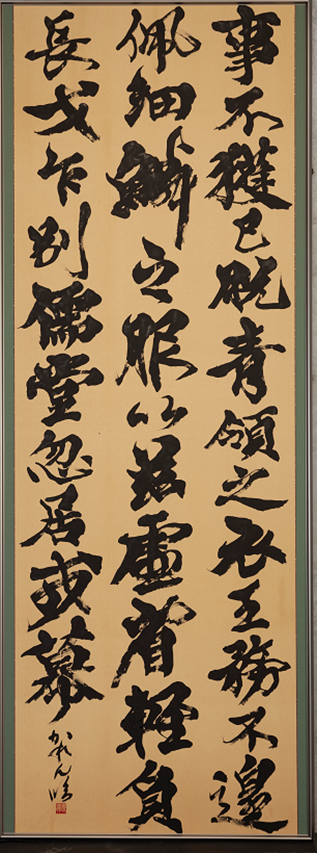 事不獲已脱青領之衣王務不遑
佩細鱗之服以茲虚省軽負
長戈乍別儒堂忽居戎幕
かれん臨